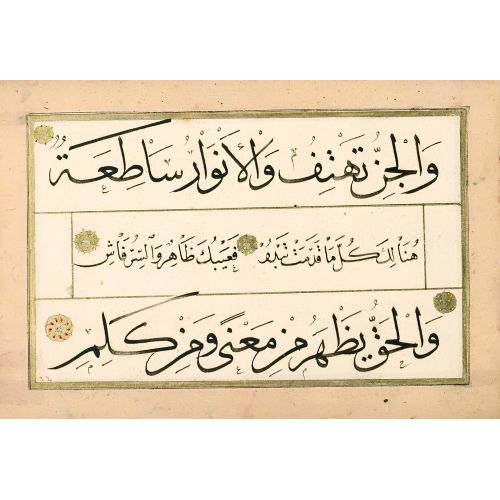 وَالْجِنُّ تَهْتِفُ وَالْأَنْوَارُ سَاطِعَةٌ
هُنَالِكَ كُلُّ مَا قَدَّمْتَ تَبْدُو فَعَيْبُكَ ظَاهِرٌ وَالسِّرُّ فَاشٍ
وَالْحَقُّ يَظْهَرُ مِنْ مَعْنًى وَمِنْ كَلِمِ